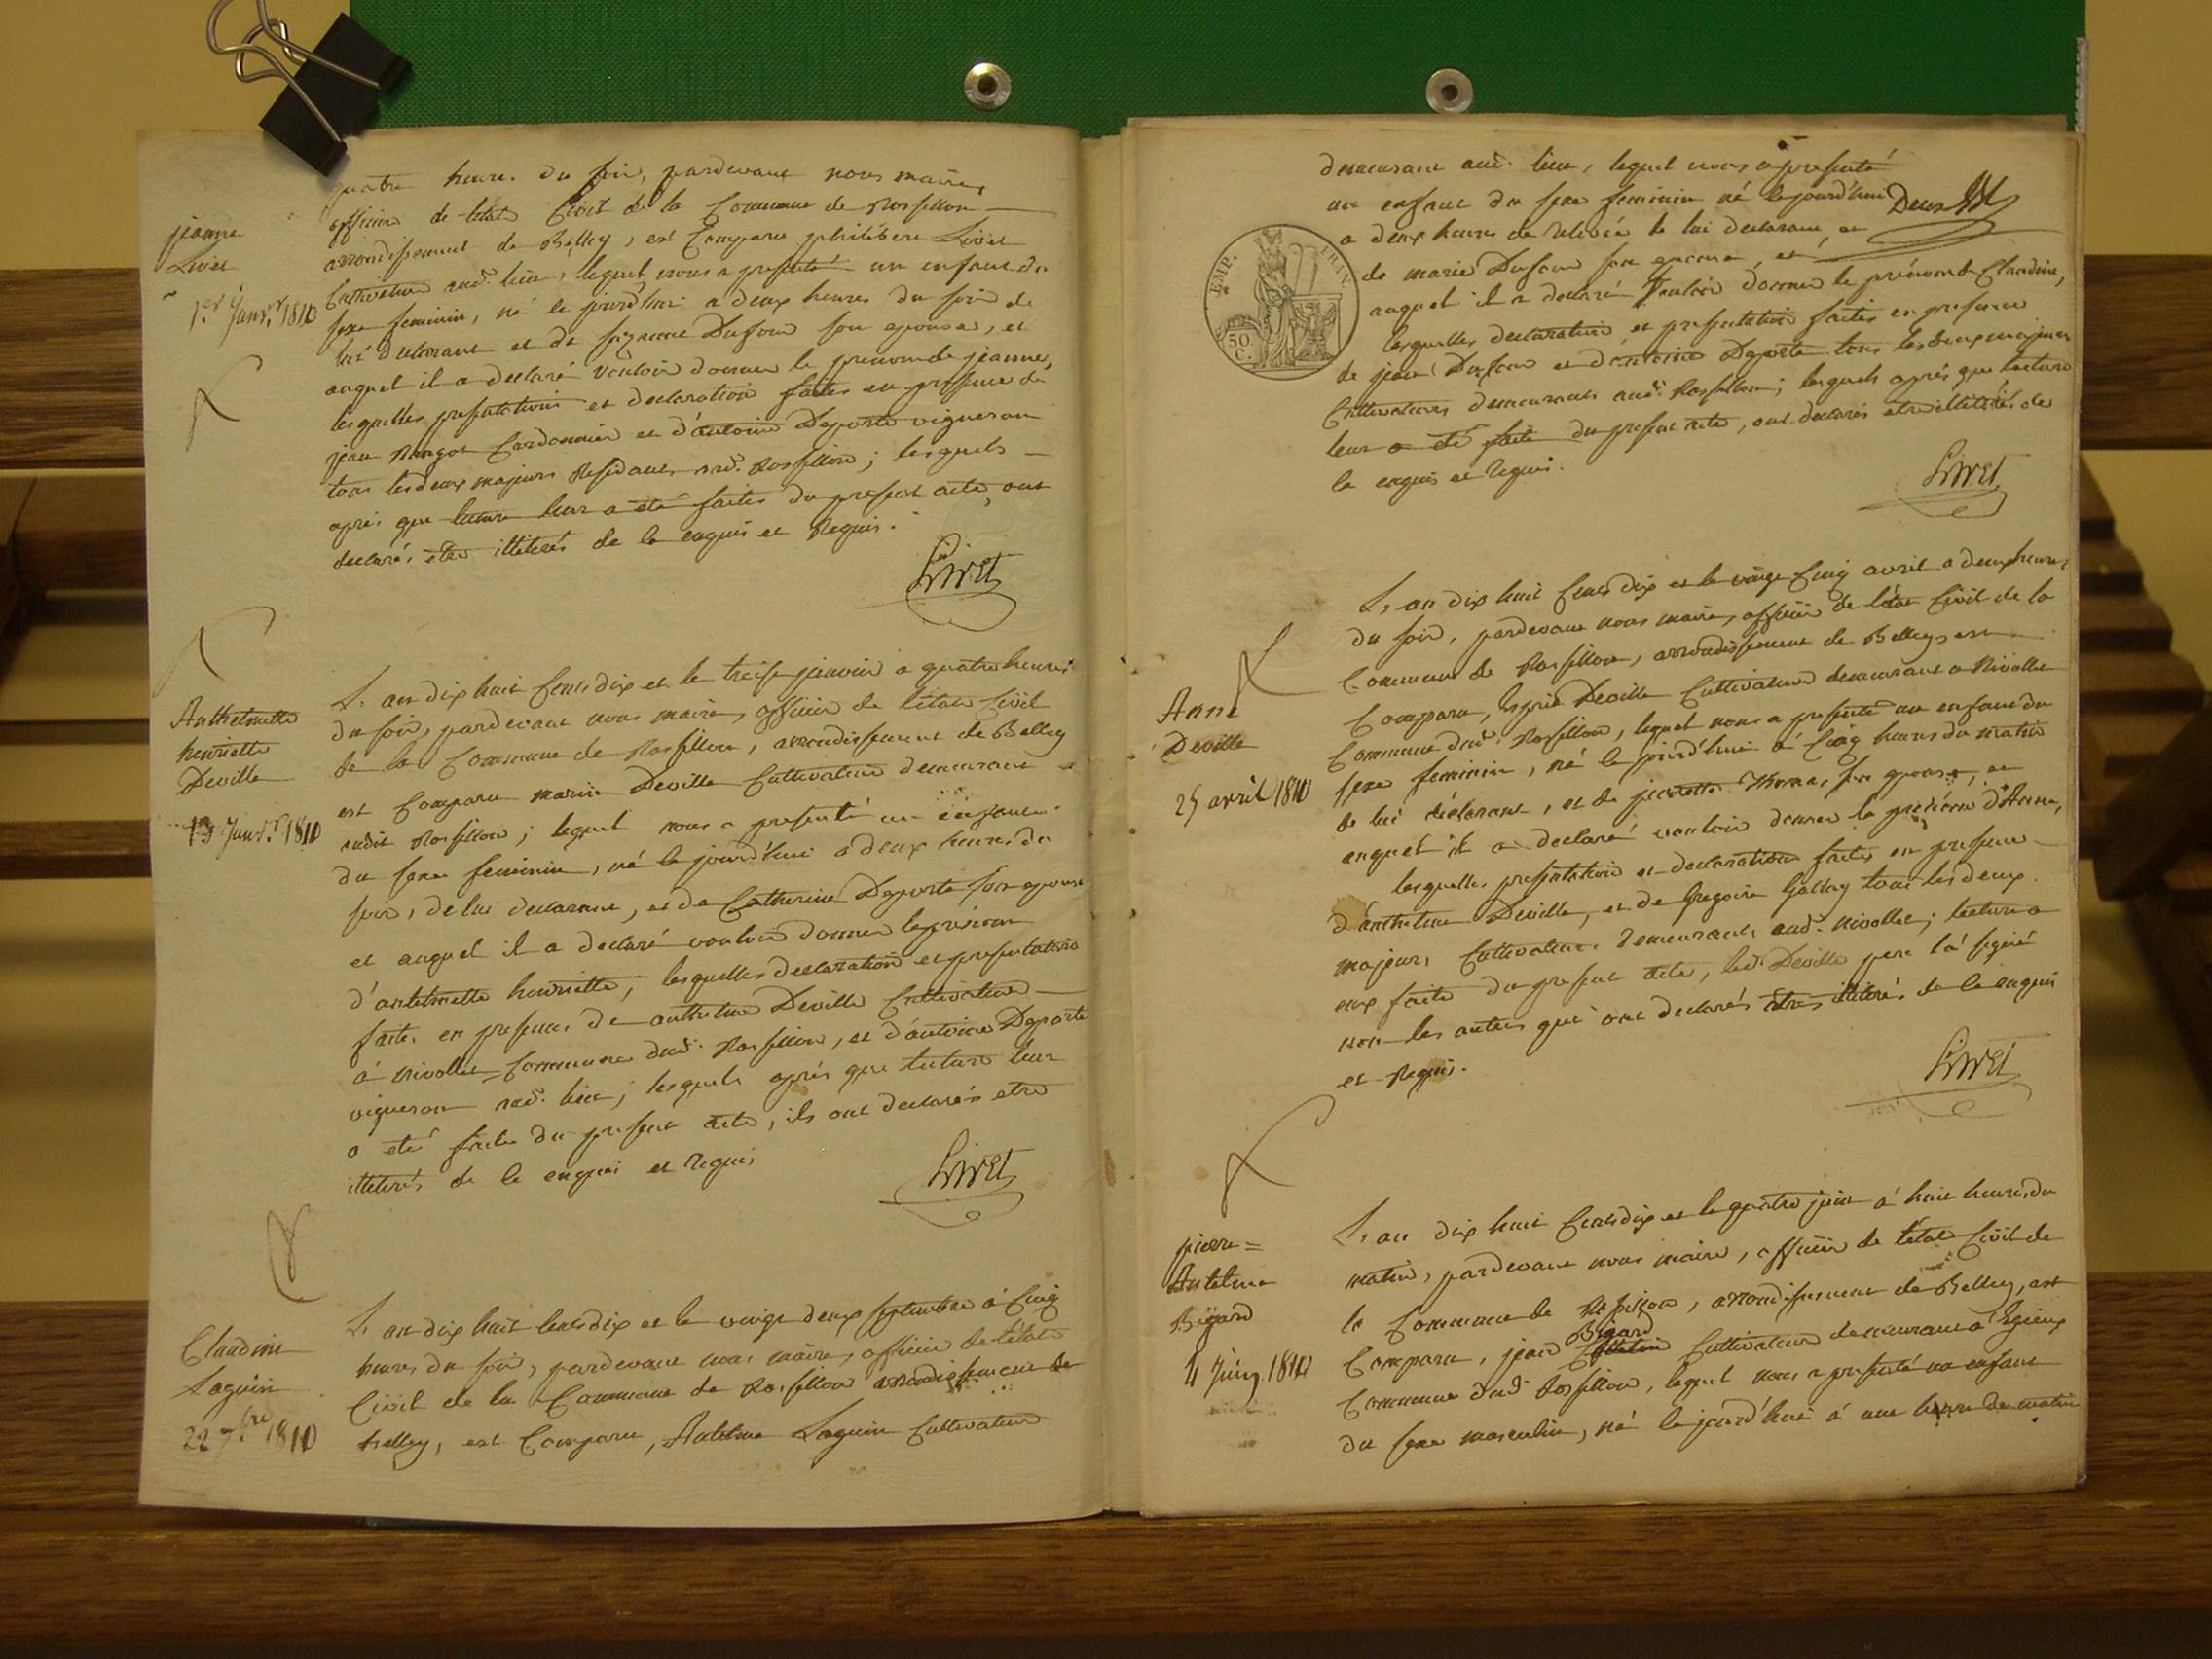 quatre heures du soir, pardevant nous maire,
officier de l'état Civil de la Commune de Rossillon
arrondissement de Belley, est Comparu philibert Livet
Cultivateur aud. lieu, lequel nous a presenté un enfant du
sexe feminin, né le jourd'hui a deux heures du soir de
lui declarant et de suzanne Dufour son epouse, et
auquel il a declaré vouloir donner le prenom de jeanne,
lesquelles presentation et declaration faites en presence de
jean Mingot Cordonnier et d'antoine Deporte vigneron
tous les deux majeurs Residants aud. Rossillon; lesquels
après que lecture leur a été faites du present acte, ont
declarés etre illiterés de ce enquis et Requis.
Livet
jeanne
Livet
1.er Janv.r 1810
L'an dix huit Cents dix et le treise janvier a quatre heures
du soir, pardevant nous maire, officier de l'état Civil
de la Commune de Rossillon, arrondissement de Belley
est Comparu marin Deville Cultivateur demeurant
audit Rossillon; lequel nous a presenté un enfant
du sexe feminin, né le jourd'hui a deux heures du
soir, de lui declarant, et de Catherine Deporte son epouse
et auquel il a declaré vouloir donner le prénom
d'antelmette henriette, lesquelles declaration et presentation
faites en presence de anthelme Deville Cultivateur
á nivollet Commune dud. Rossillon, et d'antoine Deporte
vigneron aud. lieu; lesquels après que lecture leur
a eté faite du present acte, ils ont declarés etre
illiterés de ce enquis et requis
Livet
Anthelmette
henriette
Deville
13 Janv.r 1810
L'an dix huit Cents dix et le vingt deux septembre á Cinq
heures du soir, pardevant nous maire, officier de l'état
Civil de la Commune de Rossillon arrondissement de
belley, est Comparu, Antelme Loguin Cultivateur
Claudine
Loguin
22 7.bre 1810
demeurant aud. lieu, lequel nous a presenté
un enfant du sexe feminin né le jourd'hui
a deux heures de relevée de lui declarant, et
de marie Dufour son epouse, et
auquel il a declaré vouloir donner le prénom de Claudine,
lesquelles declaration et presentation faites en presence
de jean Dufour et d'antoine Deporte tous les deux majeurs
Cultivateurs demeurants aud. Rossillon; lesquels après que lecture
leur a été faite du present acte, ont declarés etre illiterés de
ce enquis et requis.
Livet
EMP. FRAN.
50. C.
L'an dix huit Cents dix et le vingt Cinq avril a deux heures
du soir, pardevant nous maire, officier de l'état Civil de la
Commune de Rossillon, arrondissement de Belley est
Comparu, Esprit Deville Cultivateur demeurant a Nivollet
Commune dud. Rossillon, lequel nous a presenté un enfant du
sexe feminin, né le jourd'hui á Cinq heures du matin
de lui déclarant, et de son epouse, et
auquel il a declaré vouloir donner le prénom d'Anne,
lesquelles presentation et declaration faites en presence
d'anthelme Deville, et de Gregoire Gallay tous les deux
majeurs Cultivateurs demeurants aud. nivollet; lecture a
eux faite du present acte, led. Deville pere l'á signé
non les autres qui ont declarés etres illiterés de ce enquis
et Requis.
Livet
Anne
Deville
25 avril 1810
L'an dix huit Cents dix et le quatre juin á huit heures du
matin, pardevant nous maire, officier de l'état Civil de
la Commune de Rossillon, arrondissement de Belley, est
Comparu, jean Bigard Cultivateur demeurant a Egieux
Commune dud. Rossillon, lequel nous a presenté un enfant
du sexe masculin, né le jourd'hui á une heure du matin
pierre=
Antelme
Bigard
4 Juin 1810